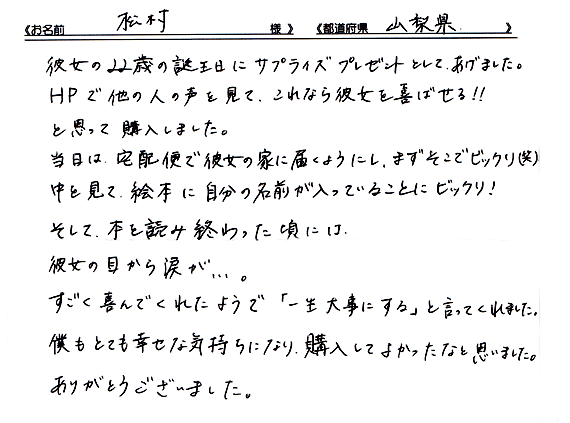 《お名前 松村 様》 《都道府県 山梨県 》
彼女の22歳の誕生日にサプライズプレゼントとして、あげました。
HPで他の人の声を見て、これなら彼女を喜ばせる!!
と思って購入しました。
当日は、宅配便で彼女の家に届くようにし、まずそこでビックリ(笑)
中を見て、絵本に自分の名前が入っていることにビックリ!
そして、本を読み終わった頃には、
彼女の目から涙が…。
すごく喜んでくれたようで「一生大事にする」と言ってくれました。
僕もとても幸せな気持ちになり、購入してよかったなと思いました。
ありがとうございました。